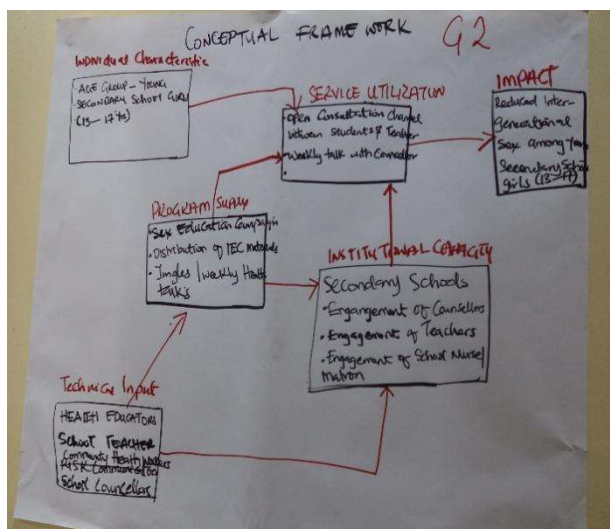 CONCEPTUAL FRAMEWORK
G2
INDIVIDUAL Characteristic
AGE GROUP - YOUNG
SECONDARY SCHOOL GIRLS
(13-17 yrs)
SERVICE UTILIZATION
• Open Consultation Channel
between Students & Teacher
• Weekly talk with Councellor
IMPACT
Reduced Inter-
generational
Sex among Young
Secondary School
girls (13-17)
PROGRAM Supply
• Sex Education Campaign
• Distribution of IEC Materials
• Jingles / Weekly Health
talks
INSTITUTIONAL CAPACITY
Secondary Schools
• Engangement of Counsellors
• Engagement of Teachers
• Engagement of School Nurse/
Matron
Technical Input
HEALTH EDUCATORS
SCHOOL TEACHER
Community Health Workers
RISK Communication
School Councellors